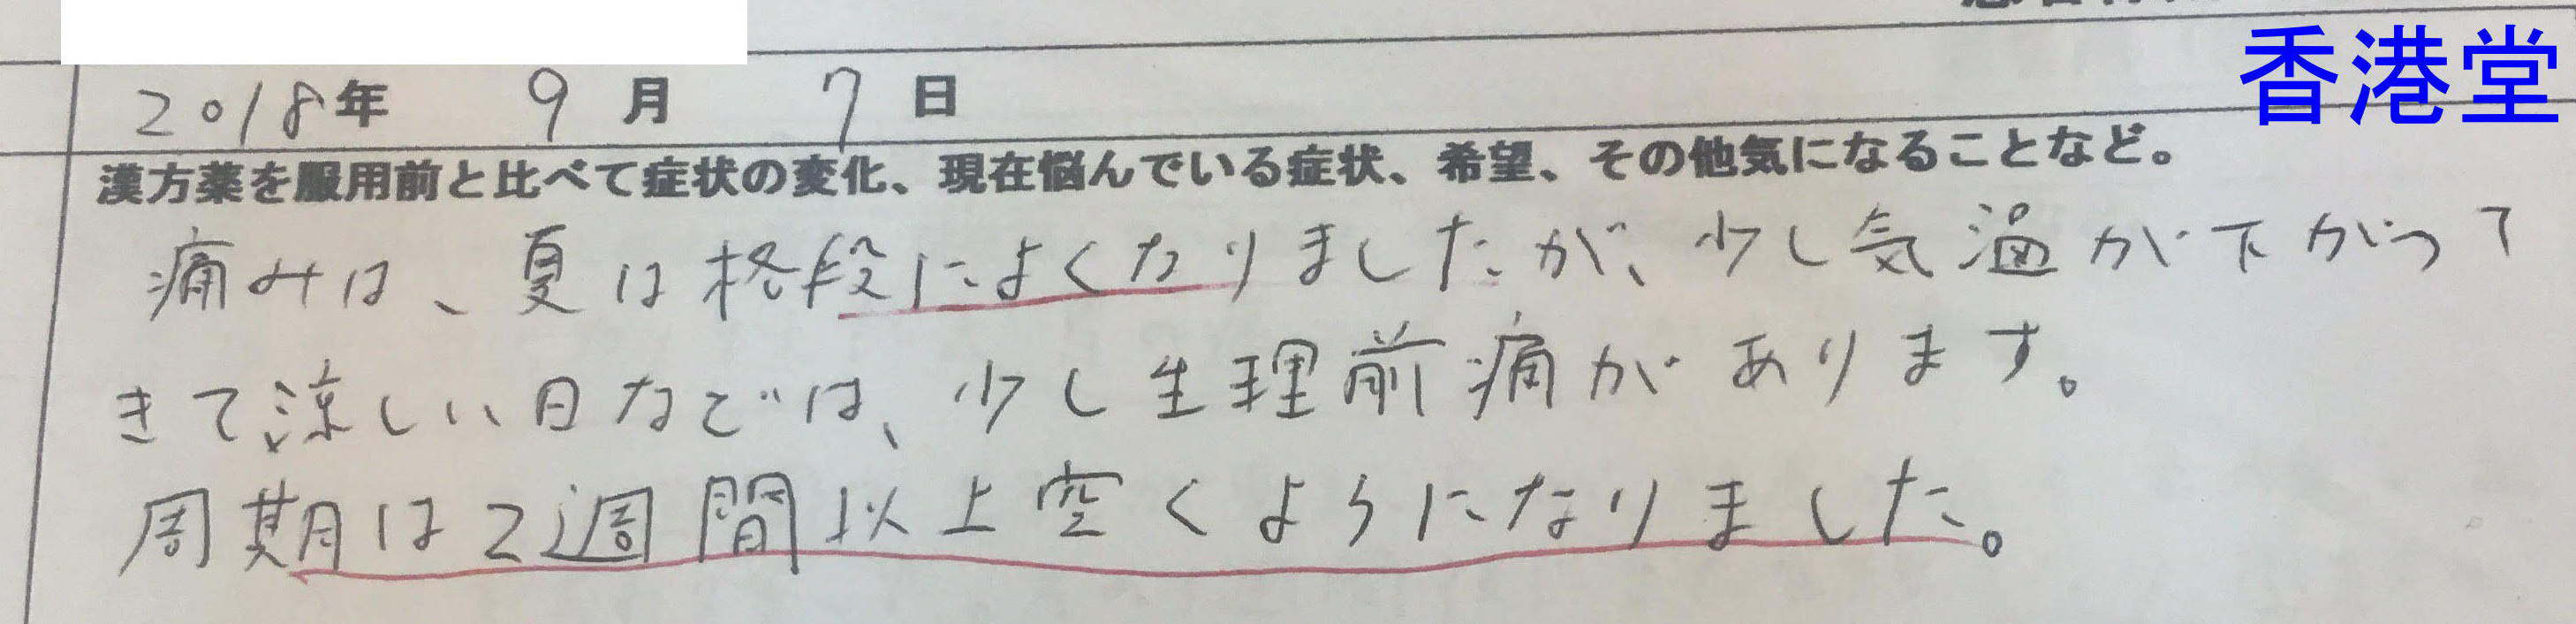 香港堂
2018年 9月 7日
漢方薬を服用前と比べて症状の変化、現在悩んでいる症状、希望、その他気になることなど。
痛みは、夏は格段によくなりましたが、少し気温が下がって
きて涼しい日などは、少し生理前痛があります。
周期は2週間以上空くようになりました。